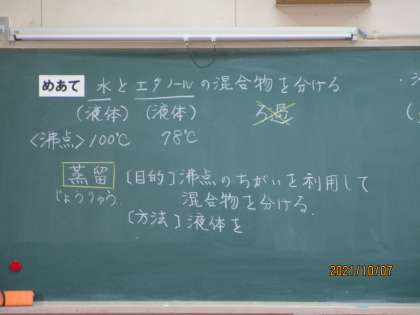 めあて 水とエタノールの混合物を分ける
(液体) (液体) ろ過
<沸点> 100℃ 78℃
蒸留 [目的] 沸点のちがいを利用して
じょうりゅう 混合物を分ける.
[方法] 液体を
2021/10/07